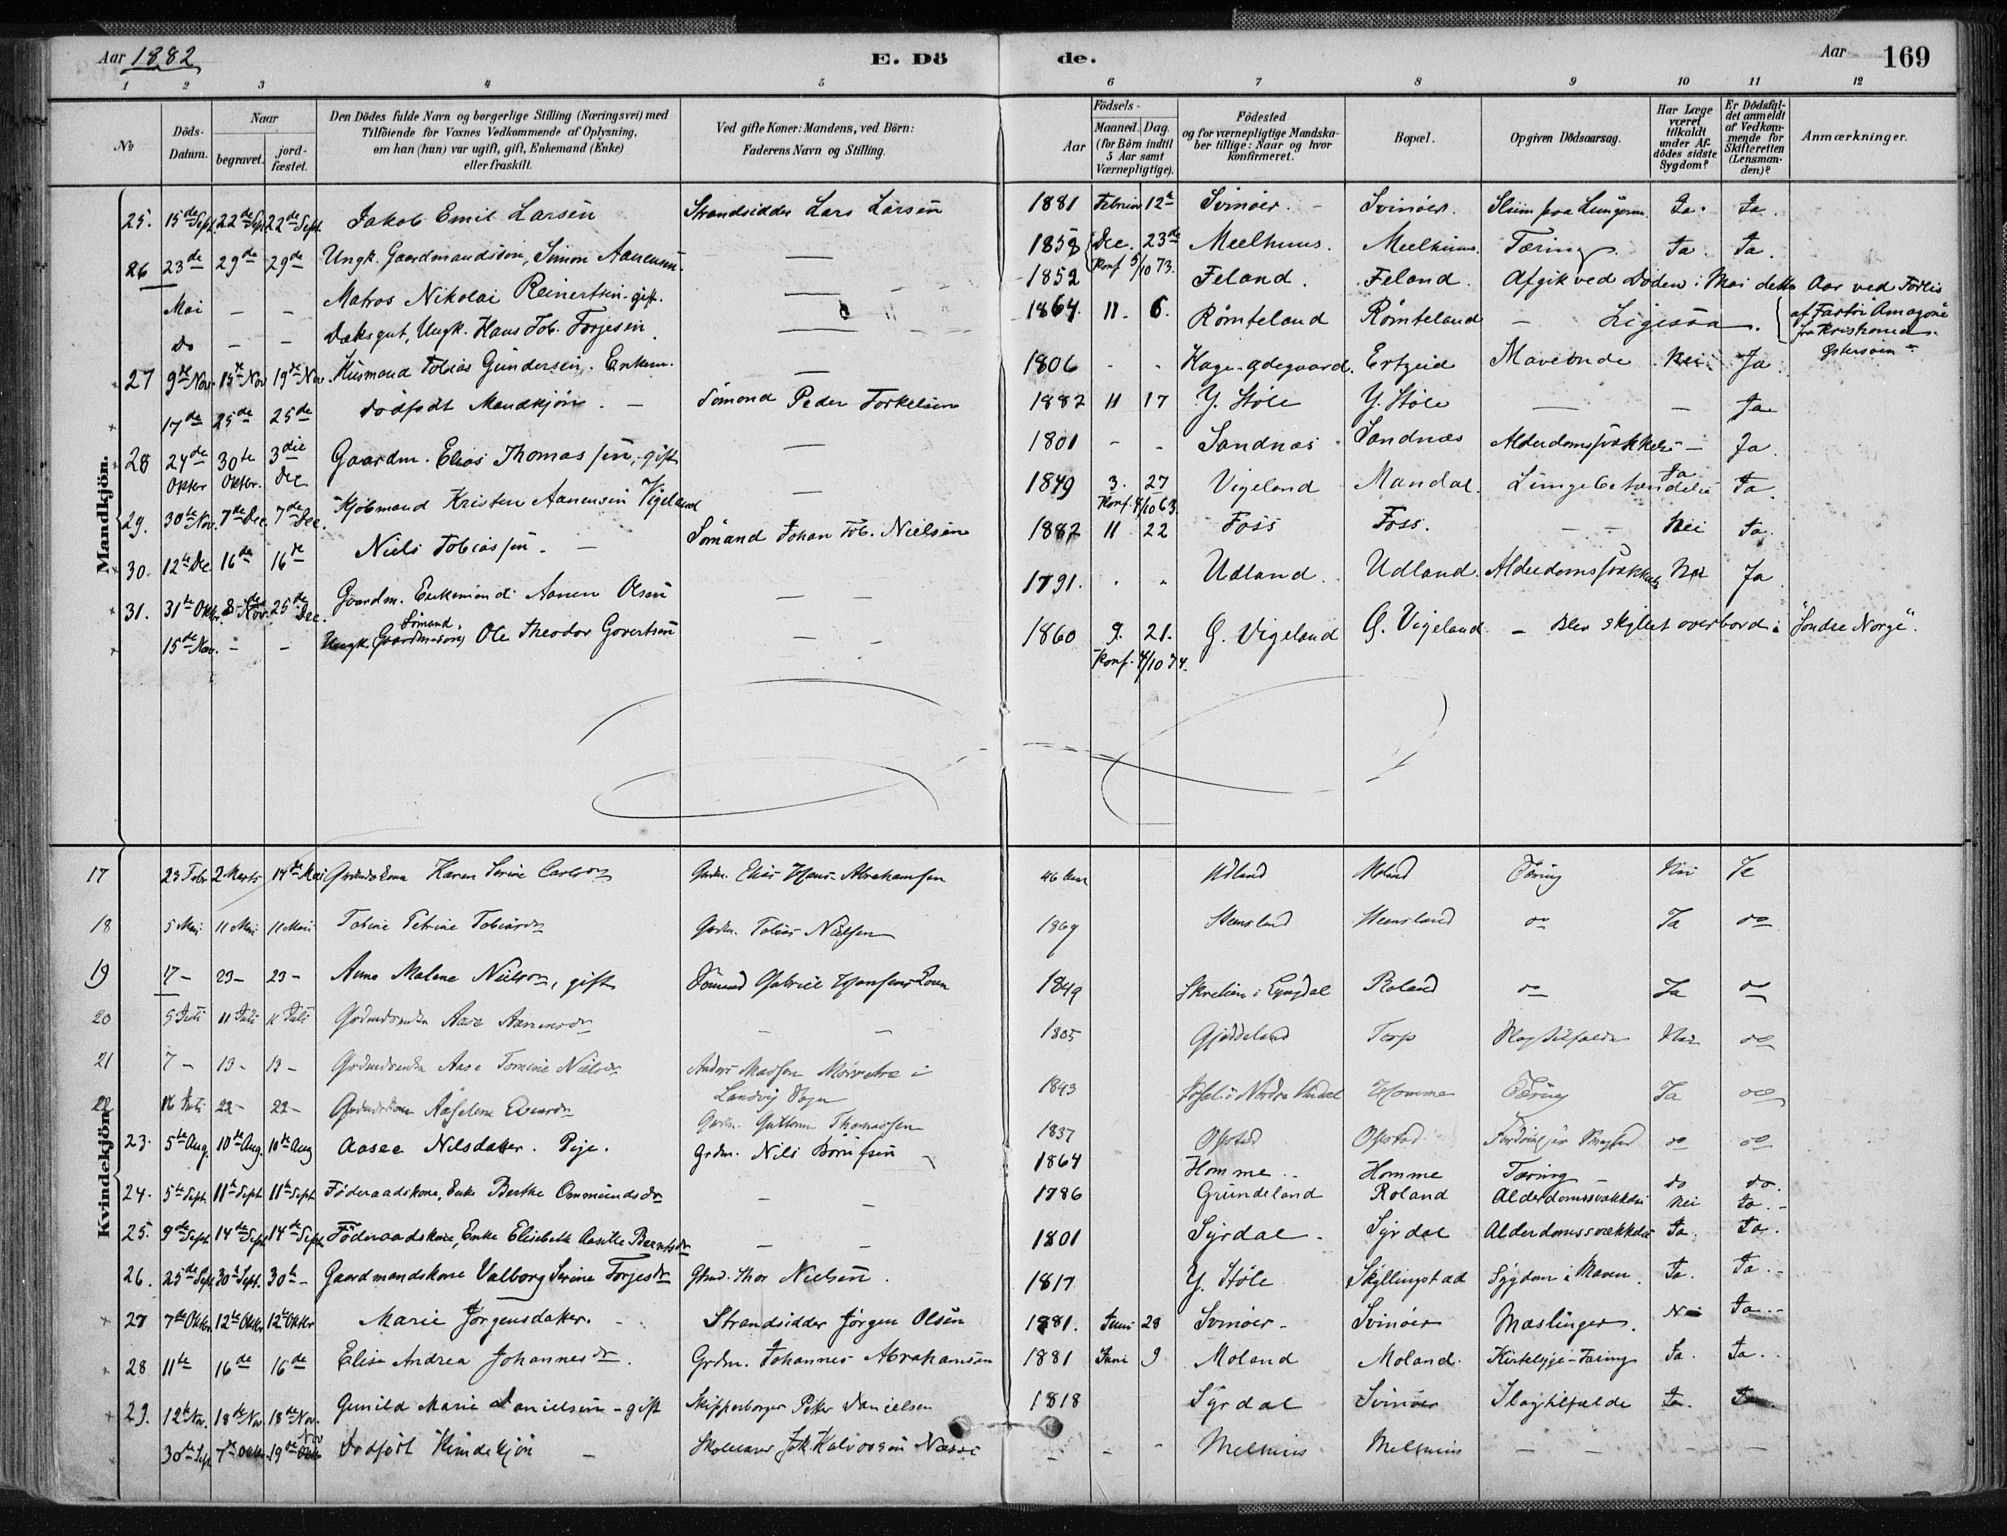 Aar 1882 E. Dö de. Aar 169
1 2 3 4 5 6 7 8 9 10 11 12
No Döds-Datum. Naar begravet. jordfæstet. Den Dödes fulde Navn og borgerlige Stilling (Næringsvei) med Tilföiende for Voxnes Vedkommende af Oplysning, om han (hun) var ugift, gift, Enkemand (Enke) eller fraskilt. Ved gifte Koner: Mandens, ved Börn: Faderens Navn og Stilling. Aar Födsels- Maaned. Dag. (for Börn indtil 5 Aar samt Værnepligtige). Födested og for værnepligtige Mandskaber tillige: Naar og hvor konfirmeret. Bopæl. Opgiven Dödsaarsag. Har Læge været tilkaldt under Afdödes sidste Sygdom? Er Dödsfaldet anmeldt af Vedkommende for Skifteretten (Lensmanden)? Anmærkninger.
Mandkjön.
25. 15de Sept. 22de Sept 22de Sept. Jakob Emil Larsen Strandsidder Lars Larsen 1881 Februar 12te Svinöer. Svinöer. Sliim paa Lungerne. Ja. Ja.
26 23de 29de 29de Ungk. Gaardmandssön, Simon Aanensen. — 1858 Dec. 23de Meelhuus. Meelhuus. Tæring. Ja. Ja.
Konf. 5/10 73.
Mai — — Matros Nikolai Reinertsen gift. — 1852 Feland. Feland. Afgik ved Döden i Mai dette Aar ved Forlis
Do — — Dæksgut, Ungk. Hans Tob. Torjesen. — 1864. 11. 6. Römteland Römteland — Ligesaa. af Fartöi Amagone
fra Kristiania.
Östersöen.
27 9de Nov. 19de Nov 19de Nov Husmand Tobias Gundersen. Enkem. — 1806 - - Hage-ödegaard. Ertzeid Maveonde Nei Ja.
17de 25de 25de Dödfödt Mandkjön. — Sömand Peder Torkelsen 1882 11 17 Y. Stöle Y. Stöle — — Ja
28 24de Oktbr 30te Oktbr. 3die Dec Gaardm. Elias Thomassen, gift — 1801 - - Sandnæs Sandnæs Alderdomssvækkelse — Ja.
29. 30te Nov. 7de Dec. 7de Dec. Kjöbmand Kristen Aanensen Vigeland — 1849 3. 27 Vigeland Mandal. Lungebetændelse Ja Ja.
Konf. 4/10 63.
30. 12te Dec 16de 16de Niels Tobiassen. — Sömand Johan Tob. Nielsen 1882 11 22 Foss Foss. — — Nei Ja.
31. 31te Oktbr. 8de Nov. 25de Dec. Gaardm. Enkemand Aanen Olsen — — 1791. Udland. Udland. Alderdomssvækkelse Nei Ja
15de Nov. - - Ungk. Sömand, (Gaardmandssön) Ole Theodor Govertsen — — 1860 9. 21. G. Vigeland G. Vigeland — Blev skyllet overbord i "Söndre Norge".
Konf. 4/10 74.
Kvindekjön.
17 23 Febr 2 Marts 14de Mai Karen Serine Grdm. Elias Abrahamsen 46 Aar Udland Tæring Nei Ja
18 5 Mai 11 Mai 11 Mai Tobine Petrine Tobiasdr Grdm. Tobias Nielsen 1869 Stensland Stensland do Ja do
19 17 — 23 — 23 — Anne Malene Nielsdr, gift Sömand Gabriel 1849 i Lyngdal Roland do Ja do
20 5 Juli 11 Juli 11 Juli Aase Aanensdr — — 1805 Gjöddeland Torp Slagtilfælde Nei do
21 7 — 13 — 13 — Aase Tomine Nielsdr Anders Madsen i 1843 Homme Tæring Ja do
Landvig Sogn
22 16 Juli 22 — 22 — Grdm. Guttorm Thomassen 1837 Ofstad Ofstad do do
23. 5te Aug. 10de Aug. 10de Aug Aasee Nilsdatter. Pige. Grdm. Nils Börufsen 1864 Homme Homme Tæring do do.
24. 5te Sept. 11te Sept 11te Sept Föderaadskone, Enke Berthe Ommundsdr — — 1786 Grundeland Roland Alderdomssvækkelse Nei Ja.
25. 9de Sept. 14de Sept. 14de Sept. Föderaadskone, Enke Elisabeth Aasille Berntsdr — — 1801 Syrdal Syrdal Alderdomssvækkelse Ja. Ja.
26. 25de Sept 30te Sept. 30te — Gaardmandskone Valborg Serine Torjesdr Gmd. Thor Nielsen. 1817 Y. Stöle Skyllingstad Sygdom i Maven. Ja. Ja.
27 7de Oktbr. 12te Oktbr 12te Oktbr Marie Jörgensdatter. Strandsidder Jörgen Olsen 1881. Juni 28 Svinöer Svinöer Mæslinger. Nei Ja.
28 11te 16de 16de Elise Andrea Johannesdr. Grdm. Johannes Abrahamsen 1881 Juni 9 Moland Moland. Kirtelsyge-Tæring Ja. Ja.
29. 12te Nov. 18de Nov. 18de Nov. Gunild Marie Danielsen - gift Skipperborger Petter Danielsen 1818 Syrdal Svinöer Slagtilfælde Ja. Ja
30te Sept 7de Oktbr 19de Nov Dödfödt Kvindekjön — Skolelærer Jak. Halvorsen Næsse — - - Melhuus Melhuus — — —